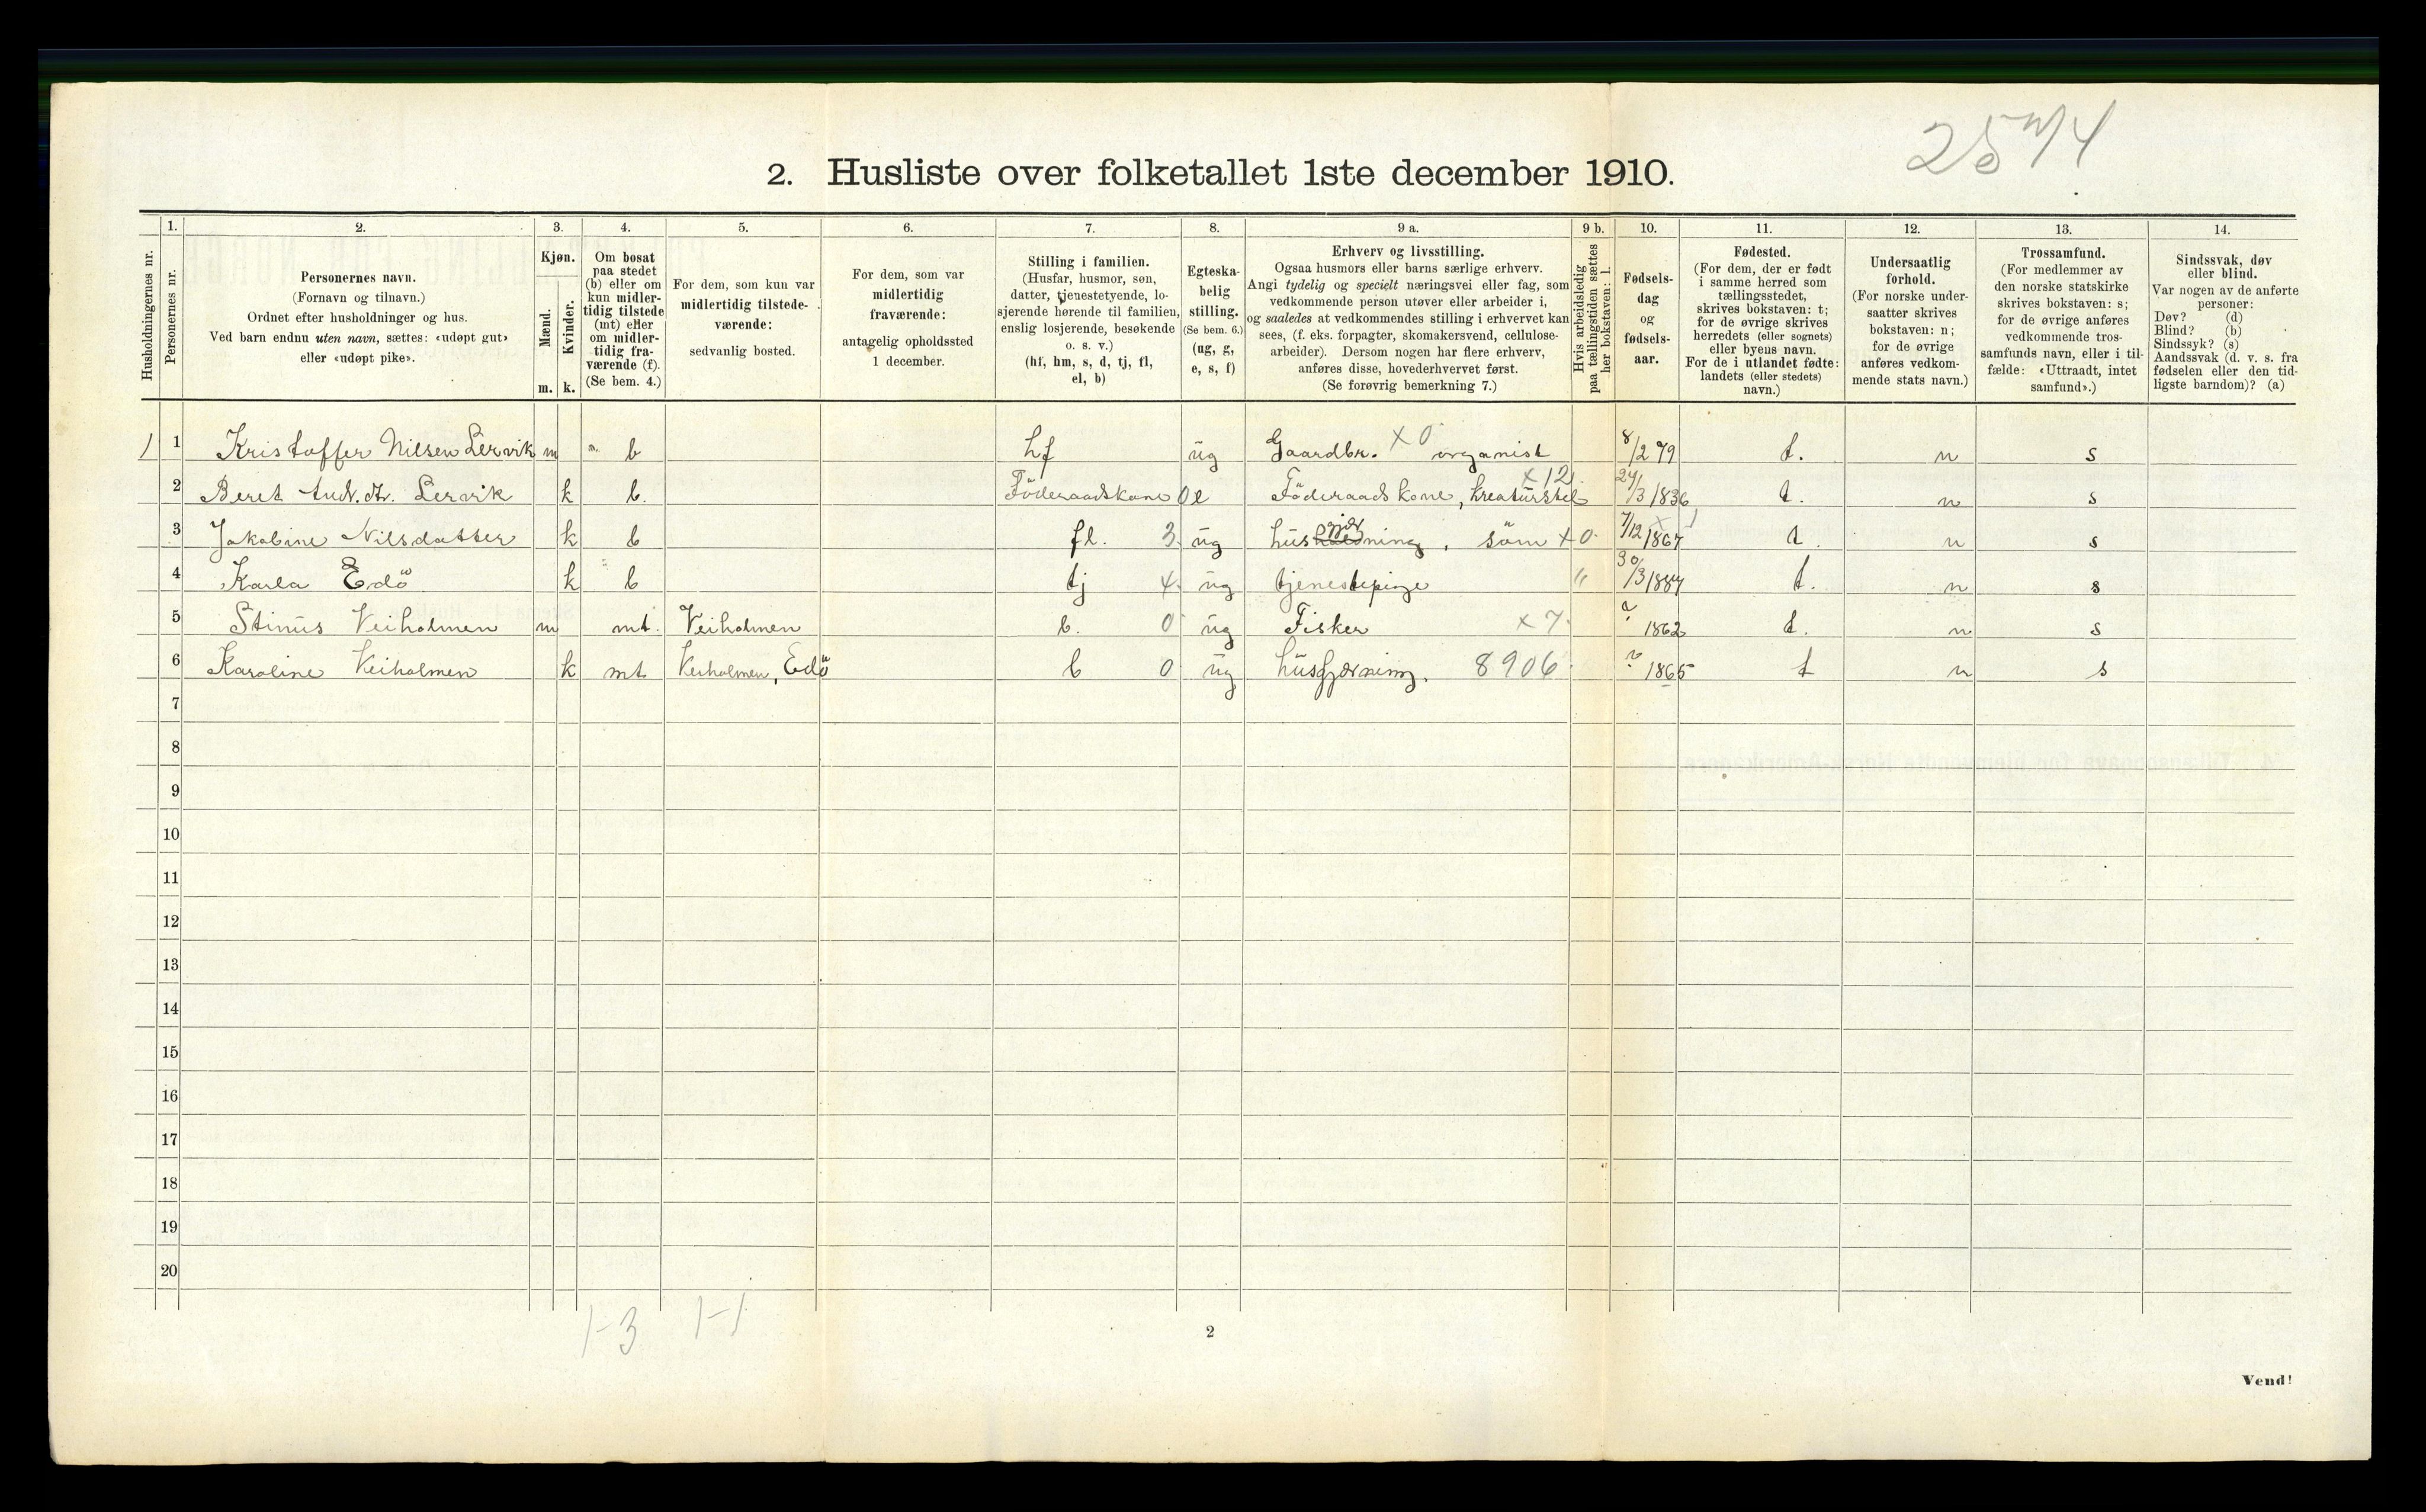 25 4
2. Husliste over folketallet 1ste december 1910.
Husholdningernes nr.
1. Personernes nr.
2. Personernes navn. (Fornavn og tilnavn.) Ordnet efter husholdninger og hus. Ved barn endnu uten navn, sættes: «udøpt gut» eller «udøpt pike».
3. Kjøn. Mænd. m. Kvinder. k.
4. Om bosat paa stedet (b) eller om kun midler-tidig tilstede (mt) eller om midler-tidig fra-værende (f). (Se bem. 4.)
5. For dem, som kun var midlertidig tilstede-værende: sedvanlig bosted.
6. For dem, som var midlertidig fraværende: antagelig opholdssted 1 december.
7. Stilling i familien. (Husfar, husmor, søn, datter, tjenestetyende, lo-sjerende hørende til familien, enslig losjerende, besøkende o. s. v.) (hf, hm, s, d, tj, fl, el, b)
8. Egteska-belig stilling. (Se bem. 6.) (ug, g, e, s, f)
9 a. Erhverv og livsstilling. Ogsaa husmors eller barns særlige erhverv. Angi tydelig og specielt næringsvei eller fag, som vedkommende person utøver eller arbeider i, og saaledes at vedkommendes stilling i erhvervet kan sees, (f. eks. forpagter, skomakersvend, cellulose-arbeider). Dersom nogen har flere erhverv, anføres disse, hovederhvervet først. (Se forøvrig bemerkning 7.)
9 b. Hvis arbeidsledig paa tællingstiden sættes her bokstaven: l.
10. Fødsels-dag og fødsels-aar.
11. Fødested. (For dem, der er født i samme herred som tællingsstedet, skrives bokstaven: t; for de øvrige skrives herredets (eller sognets) eller byens navn. For de i utlandet fødte: landets (eller stedets) navn.)
12. Undersaatlig forhold. (For norske under-saatter skrives bokstaven: n; for de øvrige anføres vedkom-mende stats navn.)
13. Trossamfund. (For medlemmer av den norske statskirke skrives bokstaven: s; for de øvrige anføres vedkommende tros-samfunds navn, eller i til-fælde: «Uttraadt, intet samfund».)
14. Sindssvak, døv eller blind. Var nogen av de anførte personer: Døv? (d) Blind? (b) Sindssyk? (s) Aandssvak (d. v. s. fra fødselen eller den tid-ligste barndom)? (a)
1 1 Kristoffer Nilsen Lervik m b hf ug Gaardbr. x 0 organist 8/2 79 t. n s
2 Beret And.dtr. Lervik k b. Föderaadskone 0 e Föderaadskone, kreaturstel x 12 24/3 1836 t. n s
3 Jakobine Nilsdatter k b fl. 3 ug husgjerning, söm x 0 7/12 1867 t. n s
4 Karla Edö k b tj 4. ug tjenestepige " 30/3 1887 t. n s
5 Stinus Veiholmen m mt. Veiholmen b. 0 ug Fisker x 7 ? 1862 t. n s
6 Karoline Veiholmen k mt Veiholmen, Edö b 0 ug husgjerning. 8906 ? 1865 t n s
7
8
9
10
11
12
13
14
15
16
17
18
19
20
1-3 1-1
2
Vend!